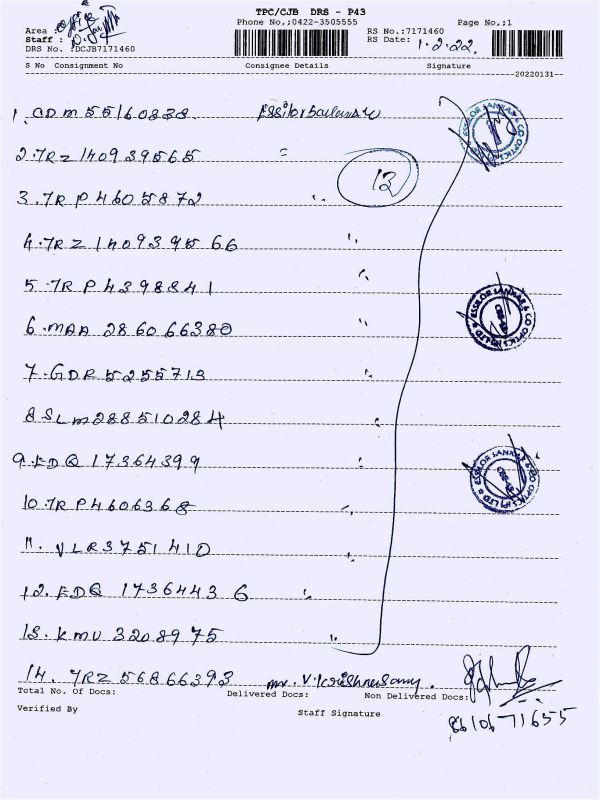 TPC/CJB DRS - P43
Phone No,;0422-3505555 Page No,;1
Area :
Staff :
DRS No. :DCJB7171460
RS No.:7171460
RS Date: 1.2.22.
S No Consignment No Consignee Details Signature
20220131
1. CDM 55160838
2. 7RZ 140939565 "
3. 7R P 4605872 "
12
4. 7RZ 140939566 "
5. 7R P 4398841 "
6. MAA 286066380 "
7. GDR 5255713 "
8 SLM 288510284 "
9. EDQ 17364399 "
10. 7R P 4606368 "
11. VLR 3751410 "
12. EDQ 17364436 "
13. KMU 3208975 "
14. 7RZ 56866393 mr. V. Krishnasamy.
ESSILOR SANKAR & CO OPTICS (P) LTD
ESSILOR SANKAR & CO OPTICS (P) LTD
ESSILOR SANKAR & CO OPTICS (P) LTD
Total No. Of Docs: Delivered Docs: Non Delivered Docs:
Verified By Staff Signature
8610671655